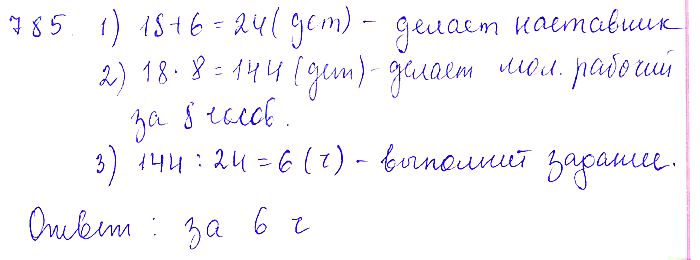 785. 1) 18+6=24 (дет) - делает наставник
2) 18·8=144 (дет) - делает мол. рабочий
за 8 часов.
3) 144:24=6 (ч) - выполнит задание.
Ответ: за 6 ч